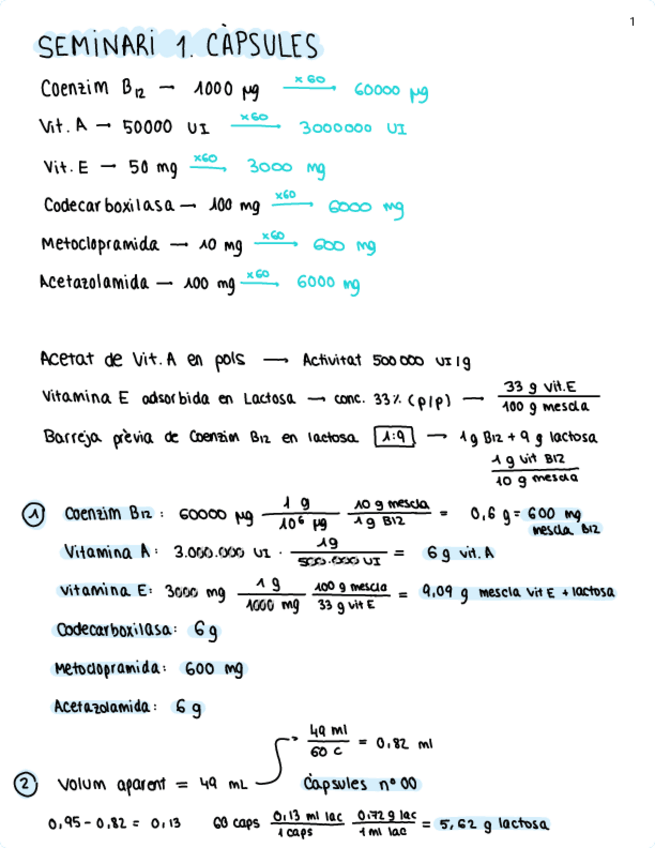 1
SEMINARI 1. CÀPSULES
Coenzim B12 → 1000 µg —x60→ 60000 µg
Vit. A → 50000 UI —x60→ 3000000 UI
Vit. E → 50 mg —x60→ 3000 mg
Codecarboxilasa → 100 mg —x60→ 6000 mg
Metoclopramida → 10 mg —x60→ 600 mg
Acetazolamida → 100 mg —x60→ 6000 mg
Acetat de Vit. A en pols → Activitat 500 000 UI/g
Vitamina E adsorbida en Lactosa → conc. 33% (p/p) → 33 g Vit.E / 100 g mescla
Barreja prèvia de Coenzim B12 en lactosa 1:9 → 1 g B12 + 9 g lactosa
1 g vit B12 / 10 g mescla
① Coenzim B12 : 60000 µg 1 g / 10⁶ µg 10 g mescla / 1 g B12 = 0,6 g = 600 mg mescla B12
Vitamina A: 3.000.000 UI · 1g / 500.000 UI = 6 g vit. A
Vitamina E: 3000 mg 1 g / 1000 mg 100 g mescla / 33 g vit E = 9,09 g mescla Vit E + lactosa
Codecarboxilasa: 6 g
Metoclopramida: 600 mg
Acetazolamida: 6 g
49 ml / 60 C = 0,82 ml
② Volum aparent = 49 mL Càpsules nº 00
0,95 - 0,82 = 0,13 60 caps 0,13 ml lac / 1 caps 0,72 g lac / 1 ml lac = 5,62 g lactosa